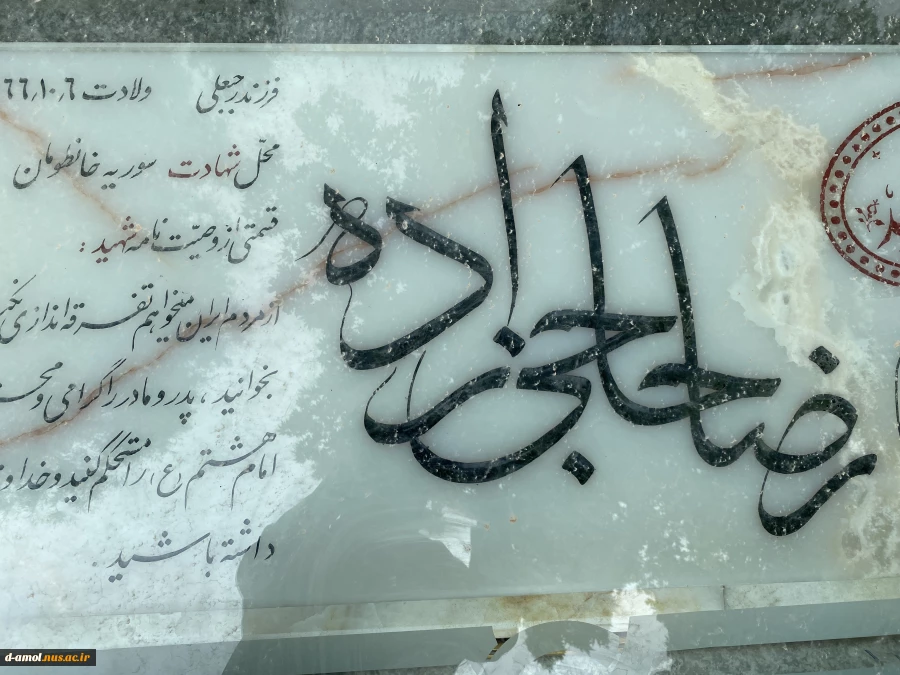 رضا حاجی زاده
فرزند رجبعلی ولادت ٦ ,١٠ ,٦٦
محلّ شهادت سوریه خانطومان
قسمتی از وصیّت نامه شهید :
از مردم ایران میخواهم تفرقه اندازی
بخوانید ، پدر و مادر را گرامی و
امام هشتم (ع) را مستحکم کنید و خدا
داشته باشید .
d-amol.nus.ac.ir